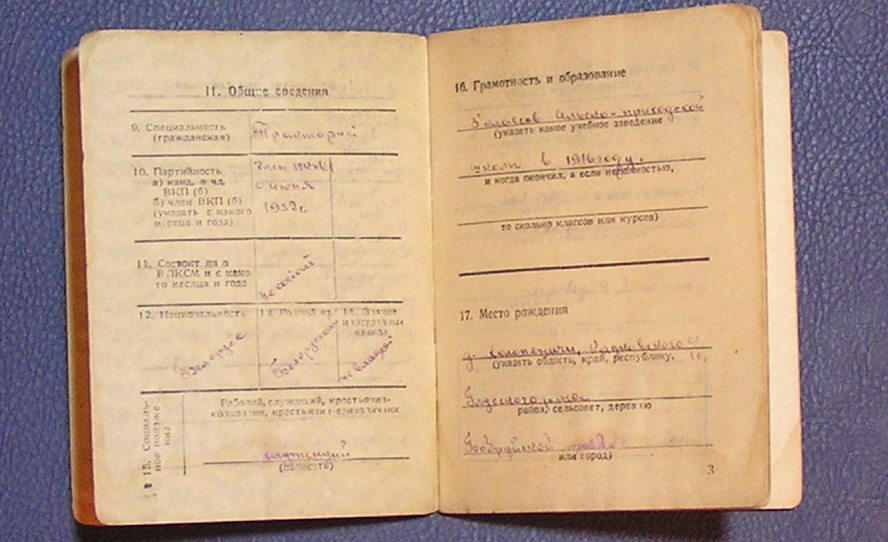 II. Общие сведения
9. Специальность
(гражданская)
Тракторист
10. Партийность
а) канд. в чл.
ВКП (б)
б) член ВКП (б)
(указать с какого
месяца и года)
Член
с июня
1932 г.
11. Состоит ли в
ВЛКСМ и с како-
го месяца и года
не состоит
12. Национальность
Белорус
13. Родной яз.
Белорусский
14. Знание
иностранных
языков
не владеет
15. Социаль-
ное положе-
ние
Рабочий, служащий, крестьянин-
колхозник, крестьянин-единоличник
служащий
(написать)
16. Грамотность и образование
5 классов Сельско-приходской
(указать какое учебное заведение
школы в 1916 году.
и когда окончил, а если неполностью,
то сколько классов или курсов)
17. Место рождения
д.
(указать область, край, республику,
Глусского р-на
район, сельсовет, деревню
Бобруйской
или город)
3